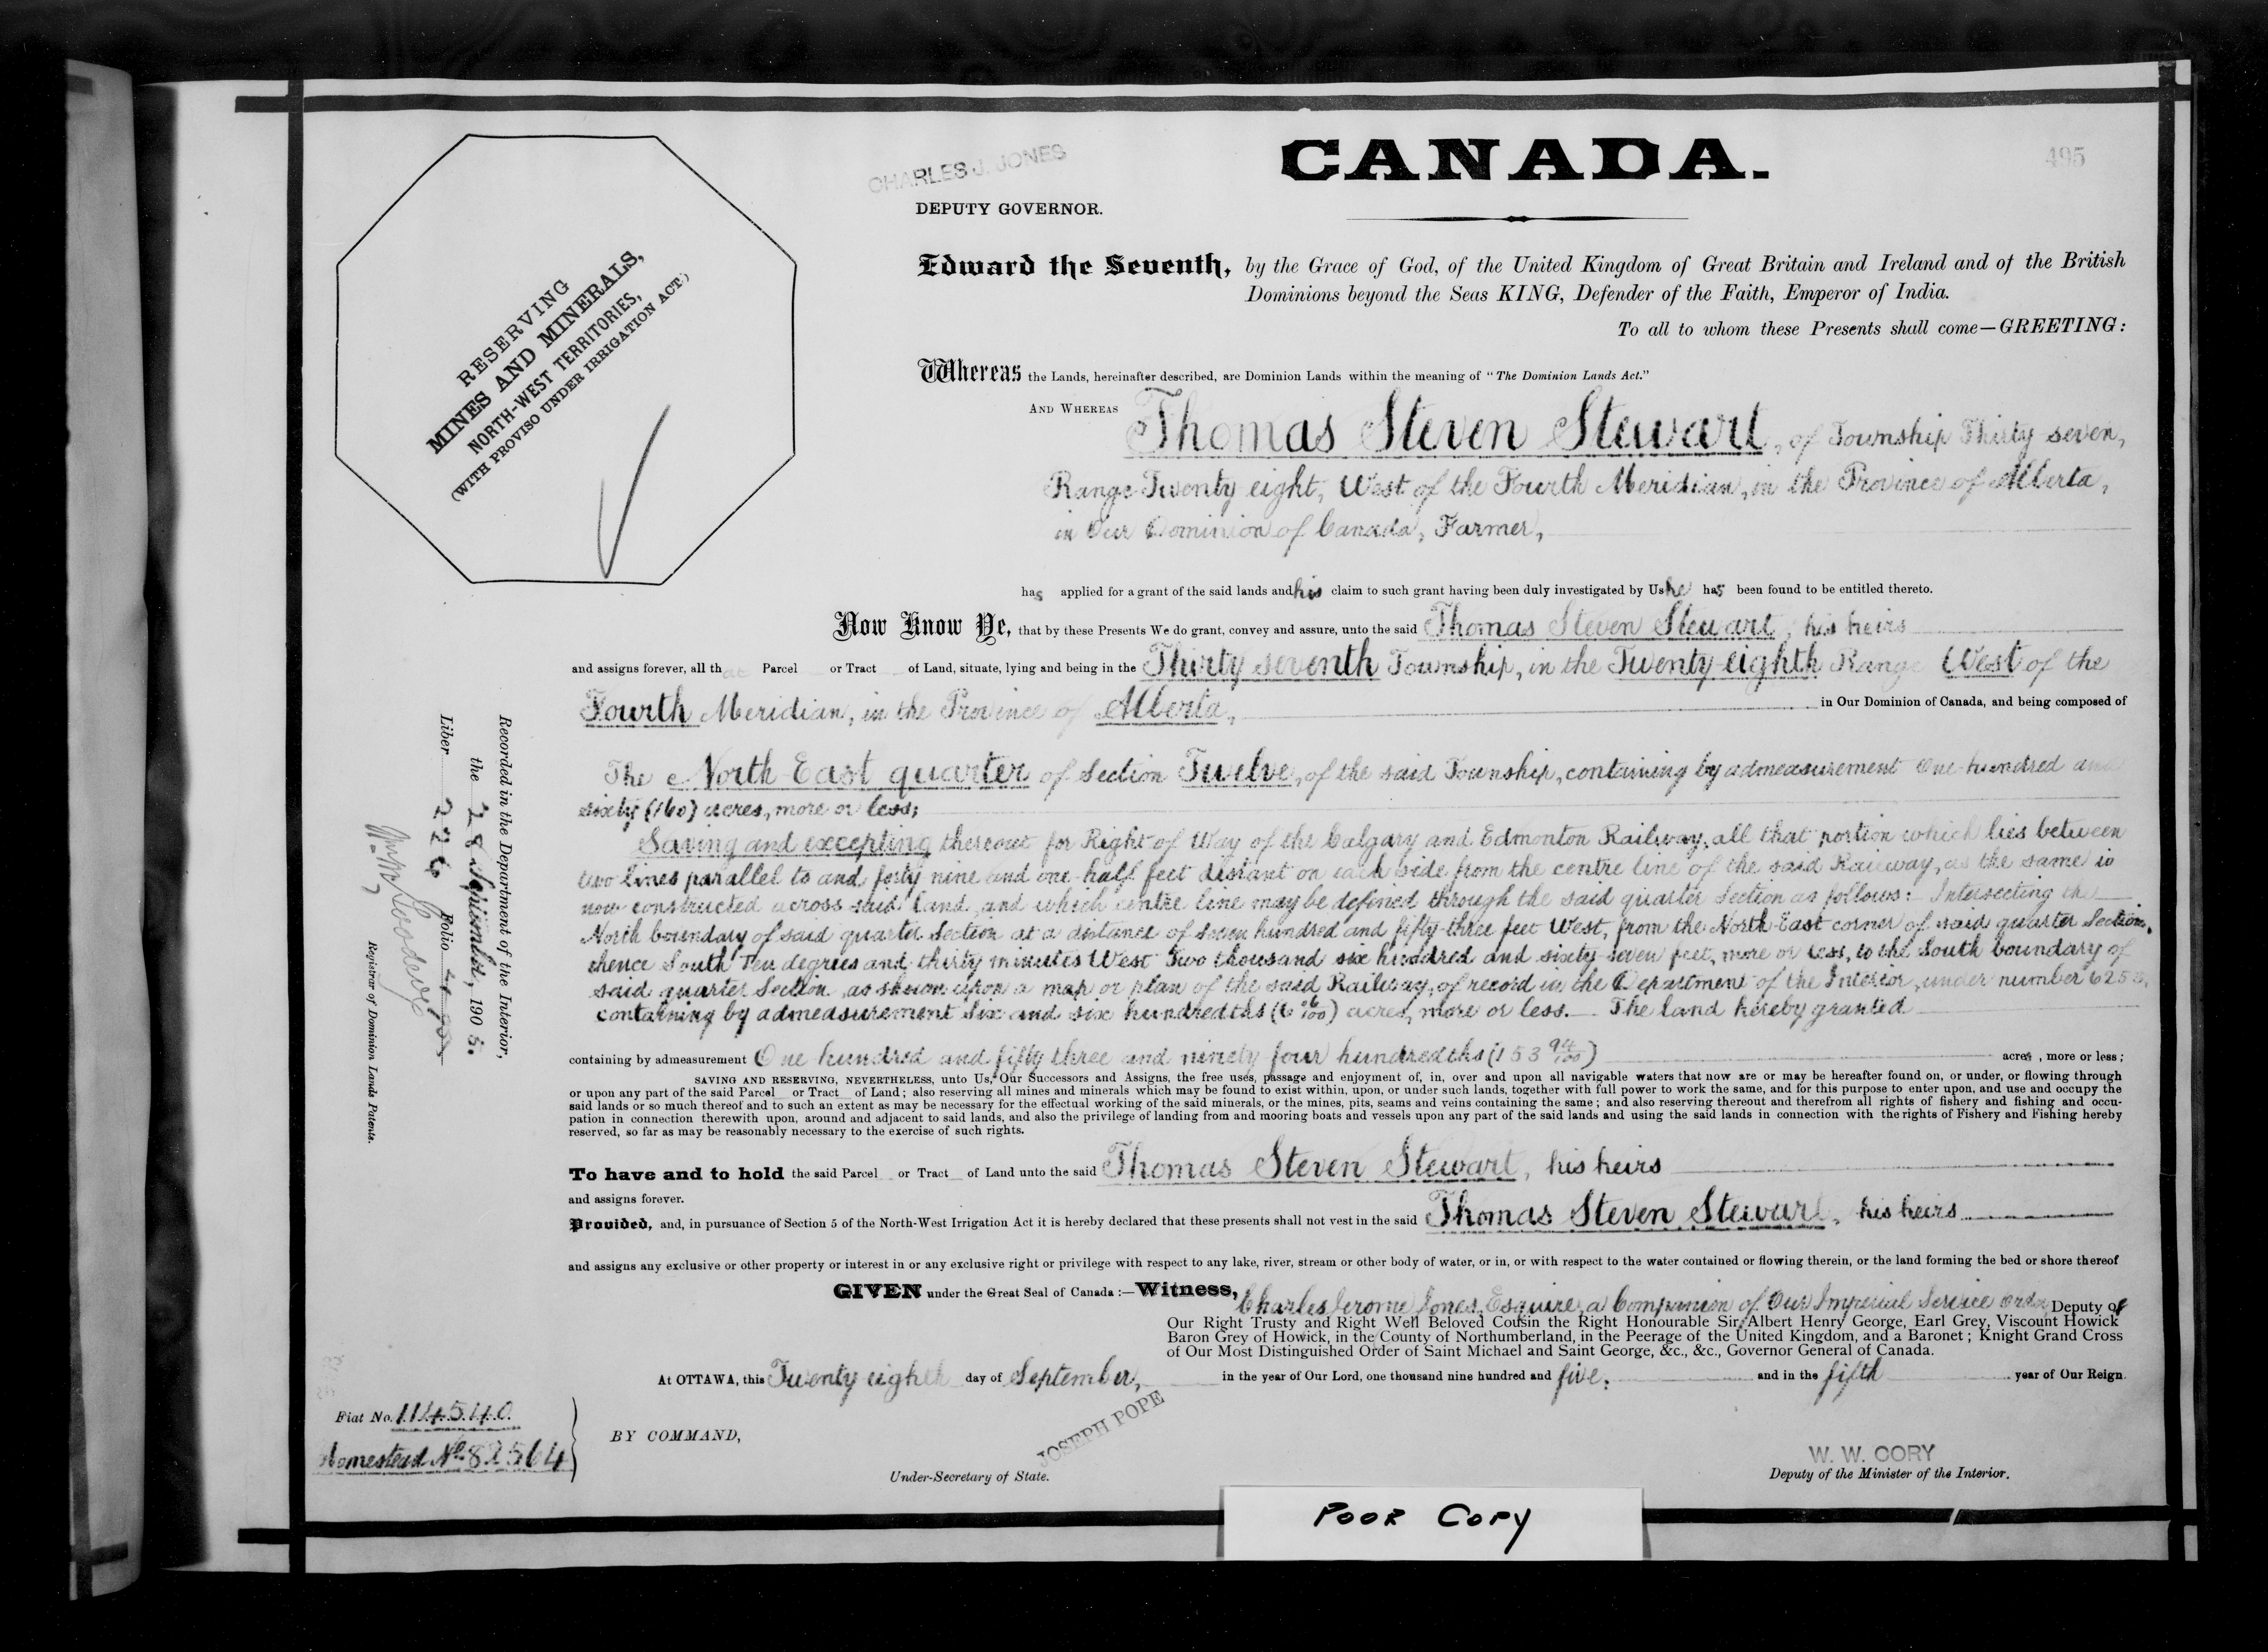 CHARLES J. JONES
DEPUTY GOVERNOR.
CANADA.
495
RESERVING
MINES AND MINERALS,
NORTH-WEST TERRITORIES,
(WITH PROVISO UNDER IRRIGATION ACT.)
Edward the Seventh, by the Grace of God, of the United Kingdom of Great Britain and Ireland and of the British
Dominions beyond the Seas KING, Defender of the Faith, Emperor of India.
To all to whom these Presents shall come—GREETING:
Whereas the Lands, hereinafter described, are Dominion Lands within the meaning of "The Dominion Lands Act."
AND WHEREAS Thomas Steven Stewart, of Township Thirty seven,
Range Twenty eight, West of the Fourth Meridian, in the Province of Alberta,
in Our Dominion of Canada, Farmer,
has applied for a grant of the said lands and his claim to such grant having been duly investigated by Us he has been found to be entitled thereto.
Now Know Ye, that by these Presents We do grant, convey and assure, unto the said Thomas Steven Stewart, his heirs
and assigns forever, all that Parcel or Tract of Land, situate, lying and being in the Thirty seventh Township, in the Twenty eighth Range West of the
Fourth Meridian, in the Province of Alberta, in Our Dominion of Canada, and being composed of
The North East quarter of Section Twelve, of the said Township, containing by admeasurement One hundred and
sixty (160) acres, more or less;
Saving and excepting thereout for Right of Way of the Calgary and Edmonton Railway, all that portion which lies between
two lines parallel to and forty nine and one half feet distant on each side from the centre line of the said Railway, as the same is
now constructed across said land, and which centre line may be defined through the said quarter Section as follows: Intersecting the
North boundary of said quarter Section at a distance of seven hundred and fifty-three feet West, from the North-East corner of said quarter Section,
thence South Ten degrees and thirty minutes West Two thousand six hundred and sixty seven feet, more or less, to the South boundary of
said quarter Section as shown upon a map or plan of the said Railway, of record in the Department of the Interior, under number
containing by admeasurement Six and six hundredths (6 6/100) acres, more or less. The land hereby granted
containing by admeasurement One hundred and fifty three and ninety four hundredths (153 94/100) acres, more or less;
SAVING AND RESERVING, NEVERTHELESS, unto Us, Our Successors and Assigns, the free uses, passage and enjoyment of, in, over and upon all navigable waters that now are or may be hereafter found on, or under, or flowing through
or upon any part of the said Parcel or Tract of Land; also reserving all mines and minerals which may be found to exist within, upon, or under such lands, together with full power to work the same, and for this purpose to enter upon, and use and occupy the
said lands or so much thereof and to such an extent as may be necessary for the effectual working of the said minerals, or the mines, pits, seams and veins containing the same; and also reserving thereout and therefrom all rights of fishery and fishing and occu-
pation in connection therewith upon, around and adjacent to said lands, and also the privilege of landing from and mooring boats and vessels upon any part of the said lands and using the said lands in connection with the rights of Fishery and Fishing hereby
reserved, so far as may be reasonably necessary to the exercise of such rights.
To have and to hold the said Parcel or Tract of Land unto the said Thomas Steven Stewart, his heirs
and assigns forever.
Provided, and, in pursuance of Section 5 of the North-West Irrigation Act it is hereby declared that these presents shall not vest in the said Thomas Steven Stewart, his heirs
and assigns any exclusive or other property or interest in or any exclusive right or privilege with respect to any lake, river, stream or other body of water, or in, or with respect to the water contained or flowing therein, or the land forming the bed or shore thereof
GIVEN under the Great Seal of Canada:—Witness, Charles Jerome Jones, Esquire, a Companion of Our Imperial Service Order, Deputy of
Our Right Trusty and Right Well Beloved Cousin the Right Honourable Sir Albert Henry George, Earl Grey, Viscount Howick
Baron Grey of Howick, in the County of Northumberland, in the Peerage of the United Kingdom, and a Baronet; Knight Grand Cross
of Our Most Distinguished Order of Saint Michael and Saint George, &c., &c., Governor General of Canada.
At OTTAWA, this Twenty eighth day of September, in the year of Our Lord, one thousand nine hundred and five, and in the fifth year of Our Reign.
Fiat No. 114540
Homestead No. 82564
BY COMMAND,
JOSEPH POPE
Under-Secretary of State.
W. W. CORY
Deputy of the Minister of the Interior.
Recorded in the Department of the Interior,
the 28 September, 1905.
Liber 226 Folio 495
Registrar of Dominion Lands Patents.
POOR COPY